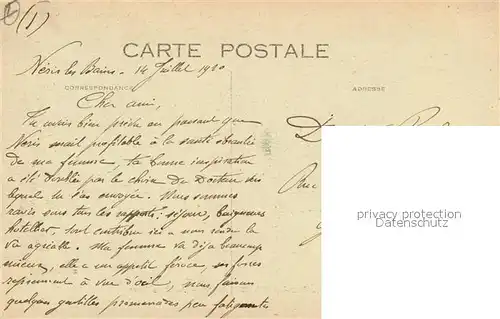 (1)
CARTE POSTALE
Néris les Bains - 14 Juillet 1920
CORRESPONDANCE
ADRESSE
Cher ami,
Tu avais bien prédit en pensant que
Néris serait profitable à la santé ébranlée
de ma femme, ta bonne inspiration
a été doublée par le choix du Docteur
lequel tu l'as envoyée. Nous sommes
ravis sous tous les rapports : séjour, baigneurs
hôtelier, tout contribue ici à nous rendre la
vie agréable. Ma femme va déjà beaucoup
mieux, elle a un appétit féroce, ses forces
reprennent à vue d'œil, nous faisons
quelques gentilles promenades peu fatigantes
Rue
privacy protection
Datenschutz